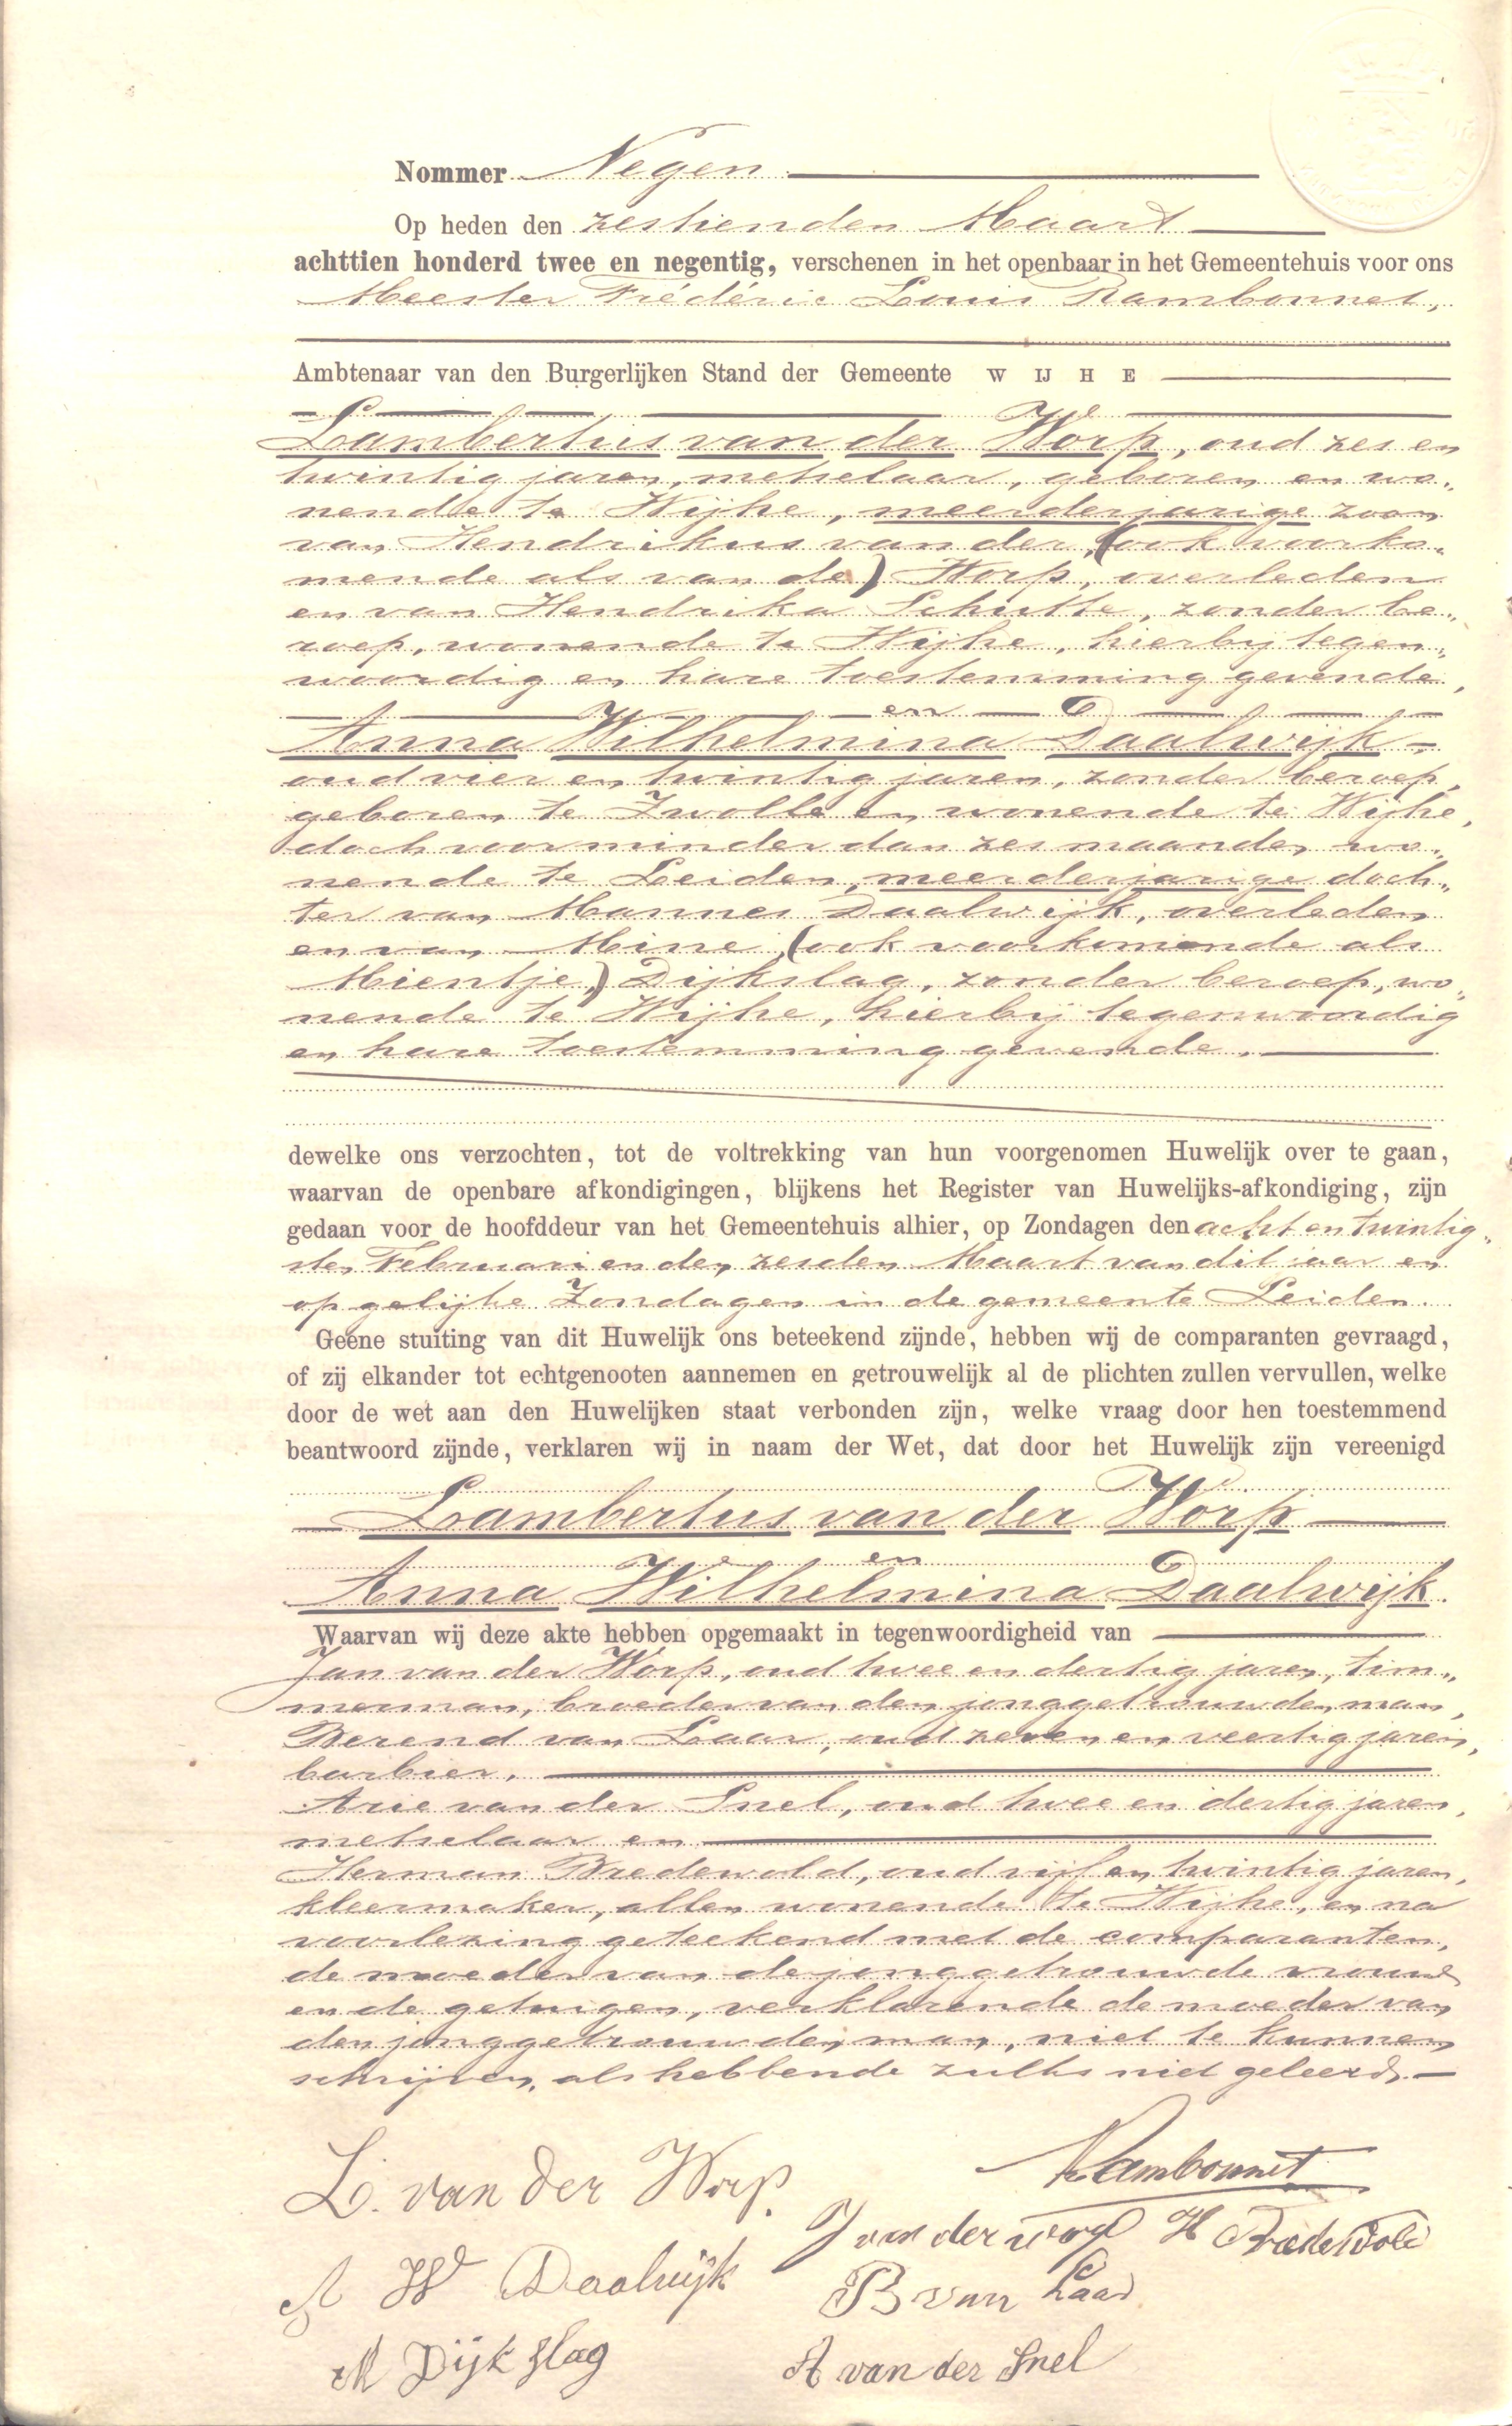 Nommer Negen
Op heden den zestienden Maart
achttien honderd twee en negentig, verschenen in het openbaar in het Gemeentehuis voor ons
Meester Frédéric Louis Rambonnet,
Ambtenaar van den Burgerlijken Stand der Gemeente WIJHE
Lambertus van der Worp, oud zes en
twintig jaren, metselaar, geboren en wo„
nende te Wijhe, meerderjarige zoon
van Hendrikus van der, (ook voorko„
mende als van de) Worp, overleden
en van Hendrika Schutte, zonder be„
roep, wonende te Wijhe, hierbij tegen„
woordig en hare toestemming gevende,
en
Anna Wilhelmina Daalwijk
oud vier en twintig jaren, zonder beroep,
geboren te Zwolle en wonende te Wijhe,
doch voor minder dan zes maanden wo„
nende te Leiden, meerderjarige doch„
ter van Mannes Daalwijk, overleden
en van Mine, (ook voorkomende als
Mientje,) Dijkslag, zonder beroep, wo„
nende te Wijhe, hierbij tegenwoordig
en hare toestemming gevende.
dewelke ons verzochten, tot de voltrekking van hun voorgenomen Huwelijk over te gaan,
waarvan de openbare afkondigingen, blijkens het Register van Huwelijks-afkondiging, zijn
gedaan voor de hoofddeur van het Gemeentehuis alhier, op Zondagen den acht en twintig„
sten Februari en den zesden Maart van dit jaar en
op gelijke Zondagen in de gemeente Leiden.
Geene stuiting van dit Huwelijk ons beteekend zijnde, hebben wij de comparanten gevraagd,
of zij elkander tot echtgenooten aannemen en getrouwelijk al de plichten zullen vervullen, welke
door de wet aan den Huwelijken staat verbonden zijn, welke vraag door hen toestemmend
beantwoord zijnde, verklaren wij in naam der Wet, dat door het Huwelijk zijn vereenigd
Lambertus van der Worp
en
Anna Wilhelmina Daalwijk.
Waarvan wij deze akte hebben opgemaakt in tegenwoordigheid van
Jan van der Worp, oud twee en dertig jaren, tim„
merman, broeder van den jonggetrouwden man,
Berend van Laar, oud zeven en veertig jaren,
barbier,
Arie van der Snel, oud twee en dertig jaren,
metselaar en
Herman Bredewold, oud vijf en twintig jaren,
kleermaker, allen wonende te Wijhe, en na
voorlezing geteekend met de comparanten,
de moeder van de jonggetrouwde vrouw
en de getuigen, verklarende de moeder van
den jonggetrouwden man, niet te kunnen
schrijven, als hebbende zulks niet geleerd.
L. van der Worp.
Rambonnet
J van der worp H Bredewold
A W Daalwijk
B van Laar
M Dijkslag
A van der Snel